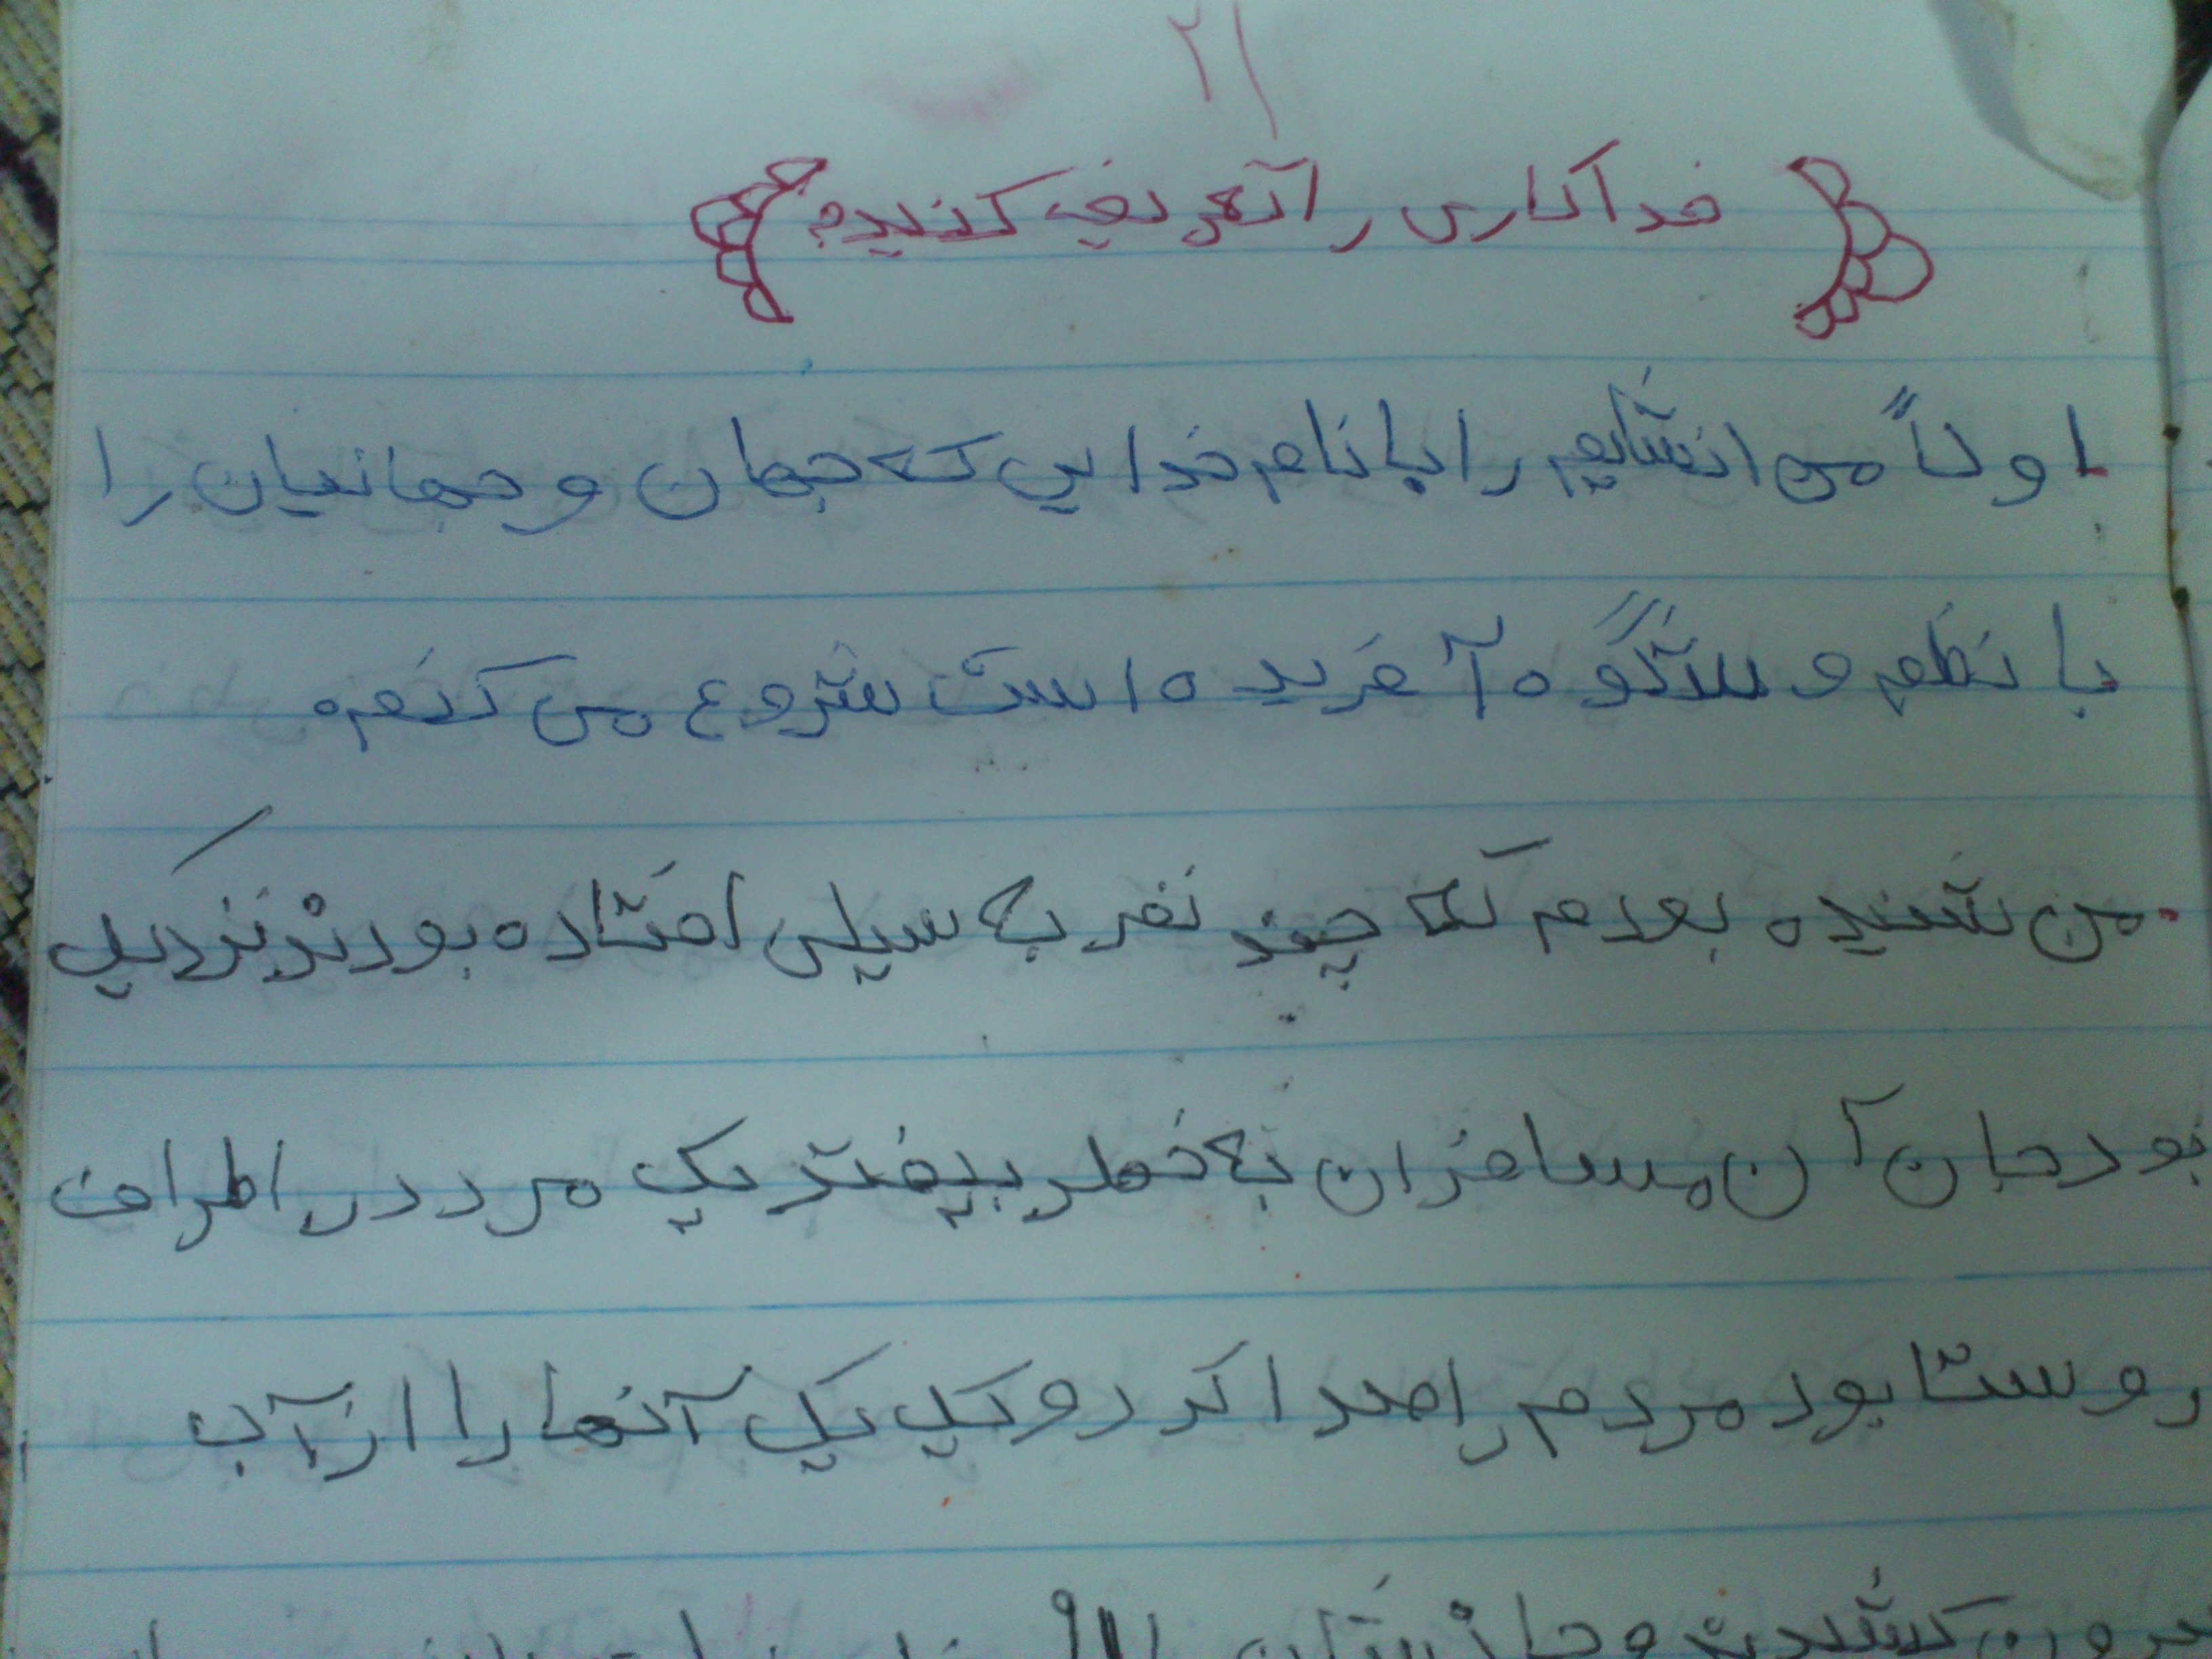 ۲۱
فداکاری را تعریف کنید.
اولاً من انشایم را با نام خدایی که جهان و جهانیان را
با نظم و شگوه آفریده است شروع می کنم.
من شنیده بودم که چند نفر به سیلی افتاده بودند نزدیک
بود جان آن مسافران به خطر بیفتد یک مرد در اطراف
روستا بود مردم را صدا کرد و یک یک آنها را از آب